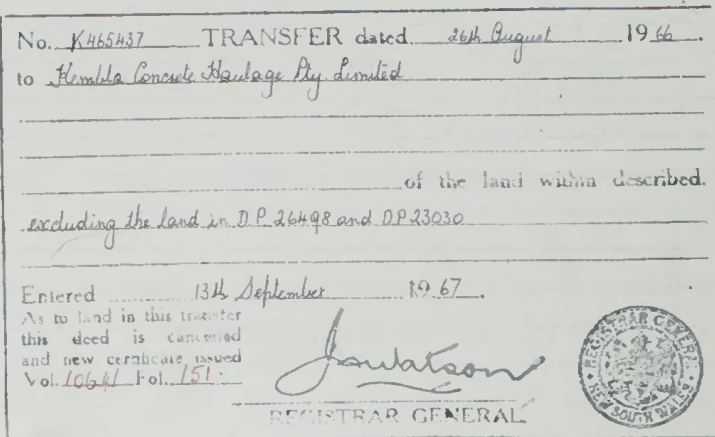 No. K465437 TRANSFER dated 26th August 1966.
to Kembla Concrete Haulage Pty Limited
of the land within described.
excluding the land in D.P. 26498 and DP 23030
Entered 13th September 1967.
As to land in this transfer
this deed is cancelled
and new certificate issued
Vol. 10641 Fol. 151
Jawatson
REGISTRAR GENERAL
REGISTRAR GENERAL
NEW SOUTH WALES